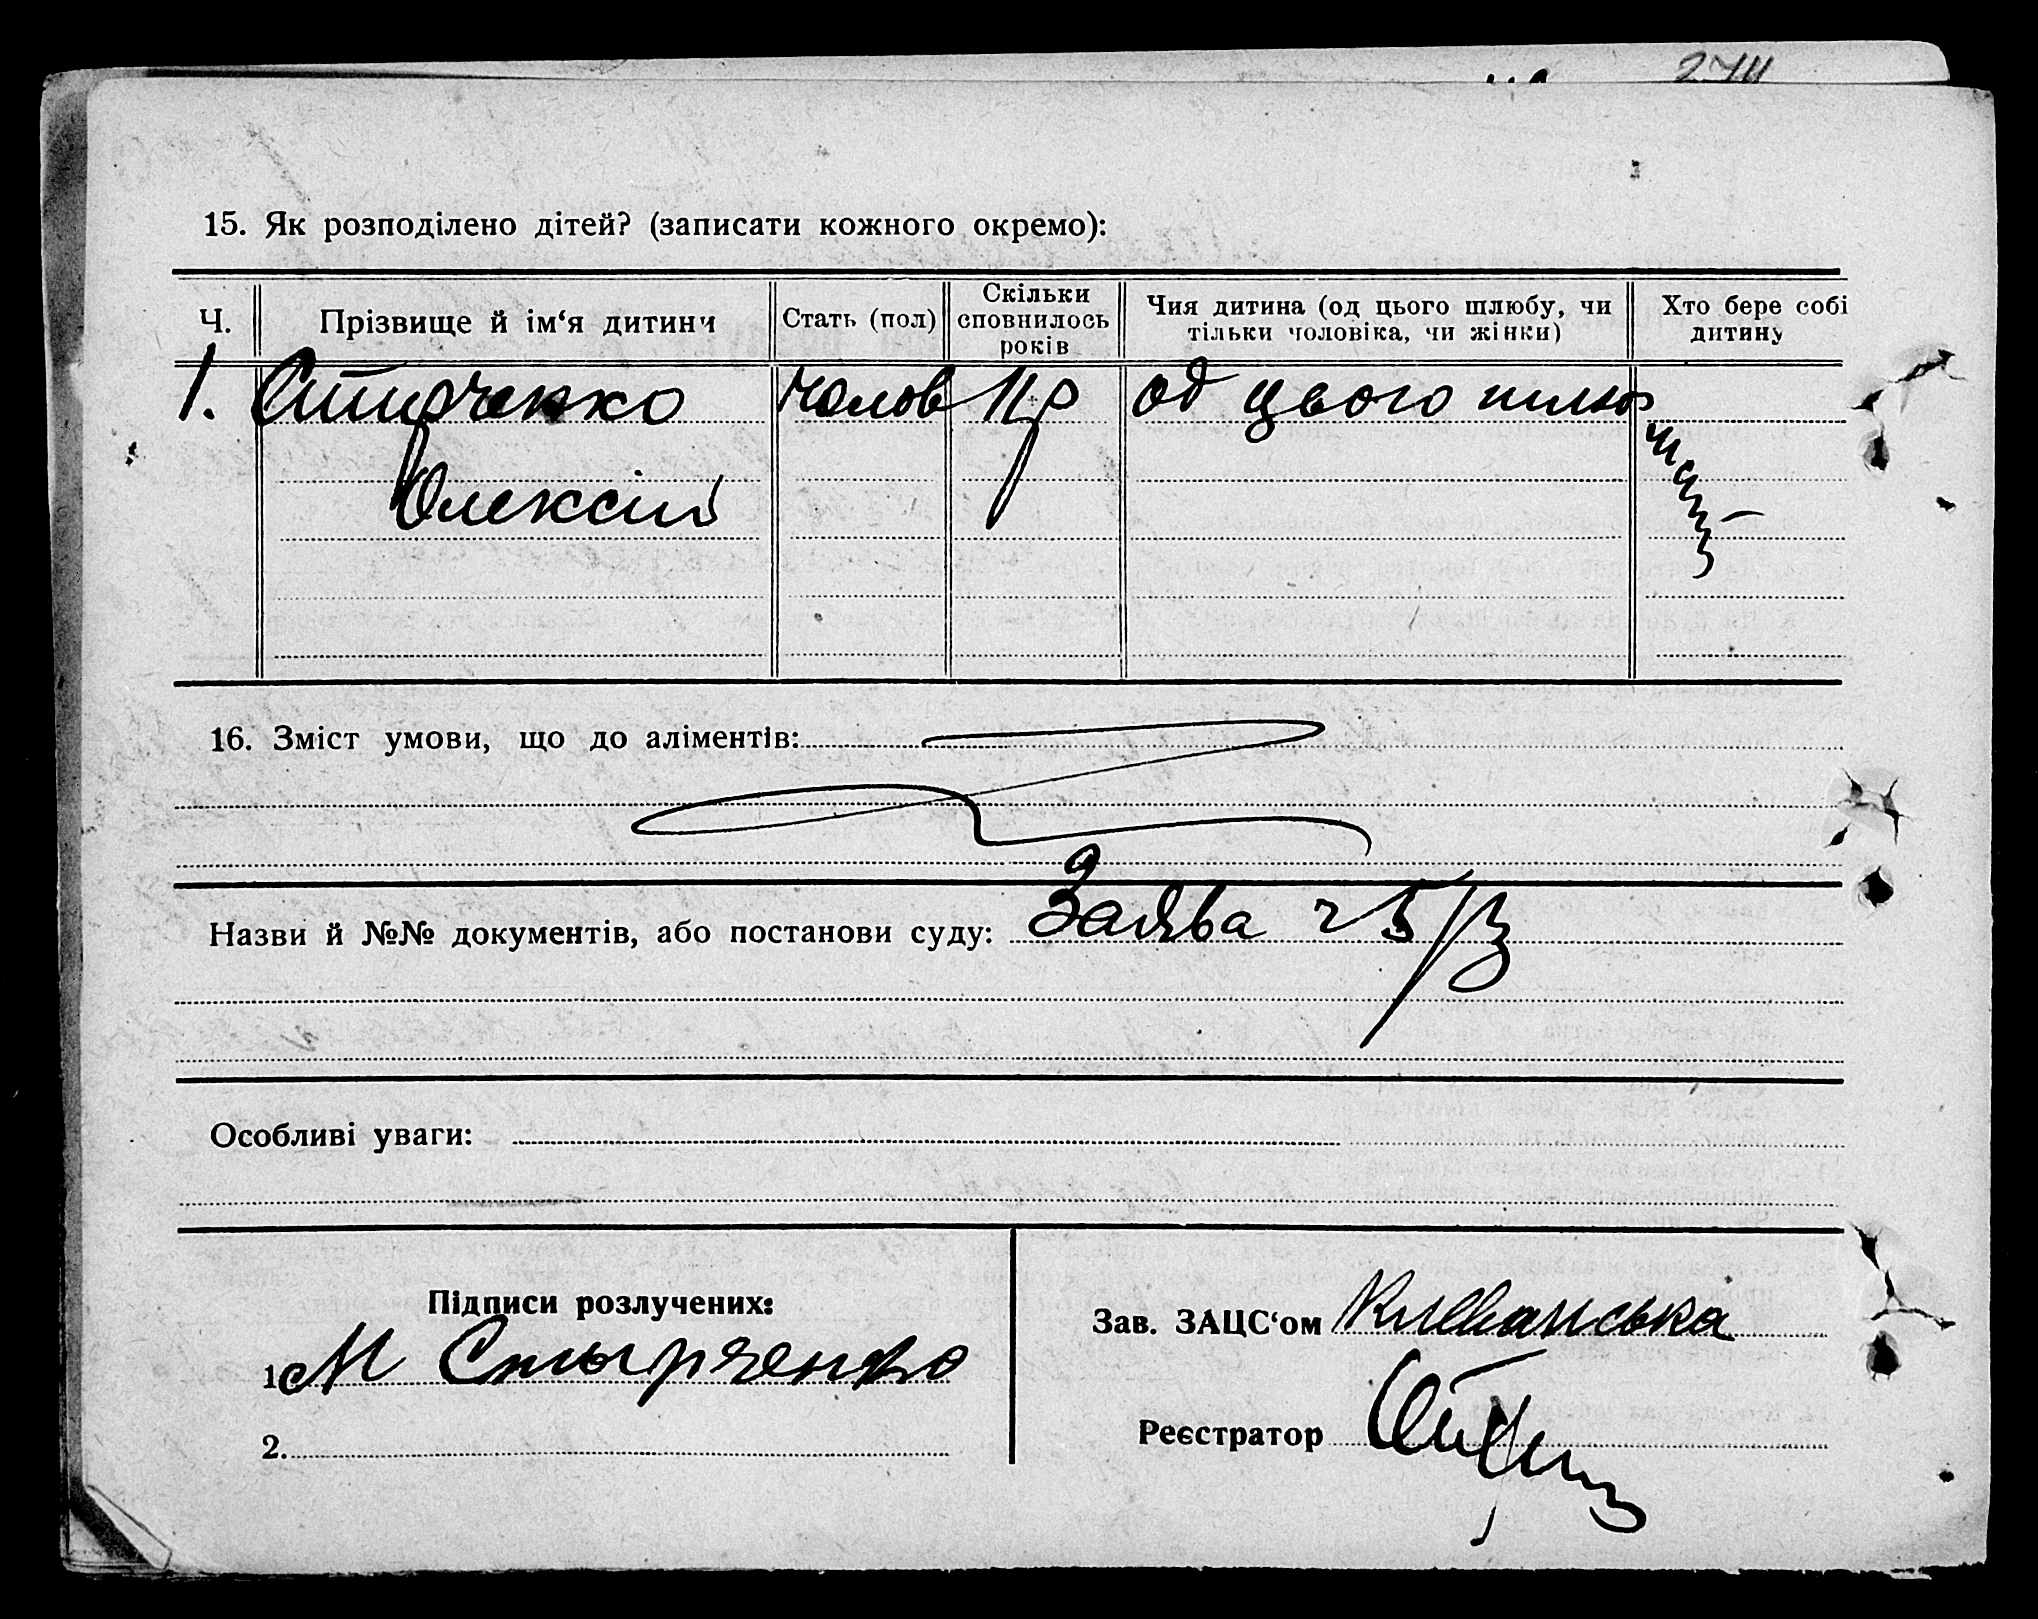 2711
15. Як розподілено дітей? (записати кожного окремо):
Ч. Прізвище й ім‘я дитини Стать (пол) Скільки сповнилось років Чия дитина (од цього шлюбу, чи тільки чоловіка, чи жінки) Хто бере собі дитину
1. Стирченко чолов 11 р од цього шлюб
Олексій мати
16. Зміст умови, що до аліментів:
Назви й №№ документів, або постанови суду: Заява ч 5/3
Особливі уваги:
Підписи розлучених:
Зав. ЗАЦС‘ом
1. М Стырченко
Реєстратор
2.